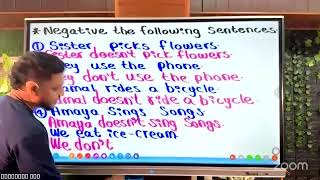 * Negative the following Sentences.
① Sister picks flowers.
Sister doesn't pick flowers.
ey use the phone.
ey don't use the phone.
mal rides a bicycle.
mal doesn't ride a bicycle.
④ Amaya Sings Songs.
Amaya doesn't Sing Songs.
We eat ice-cream.
We don't
zoom